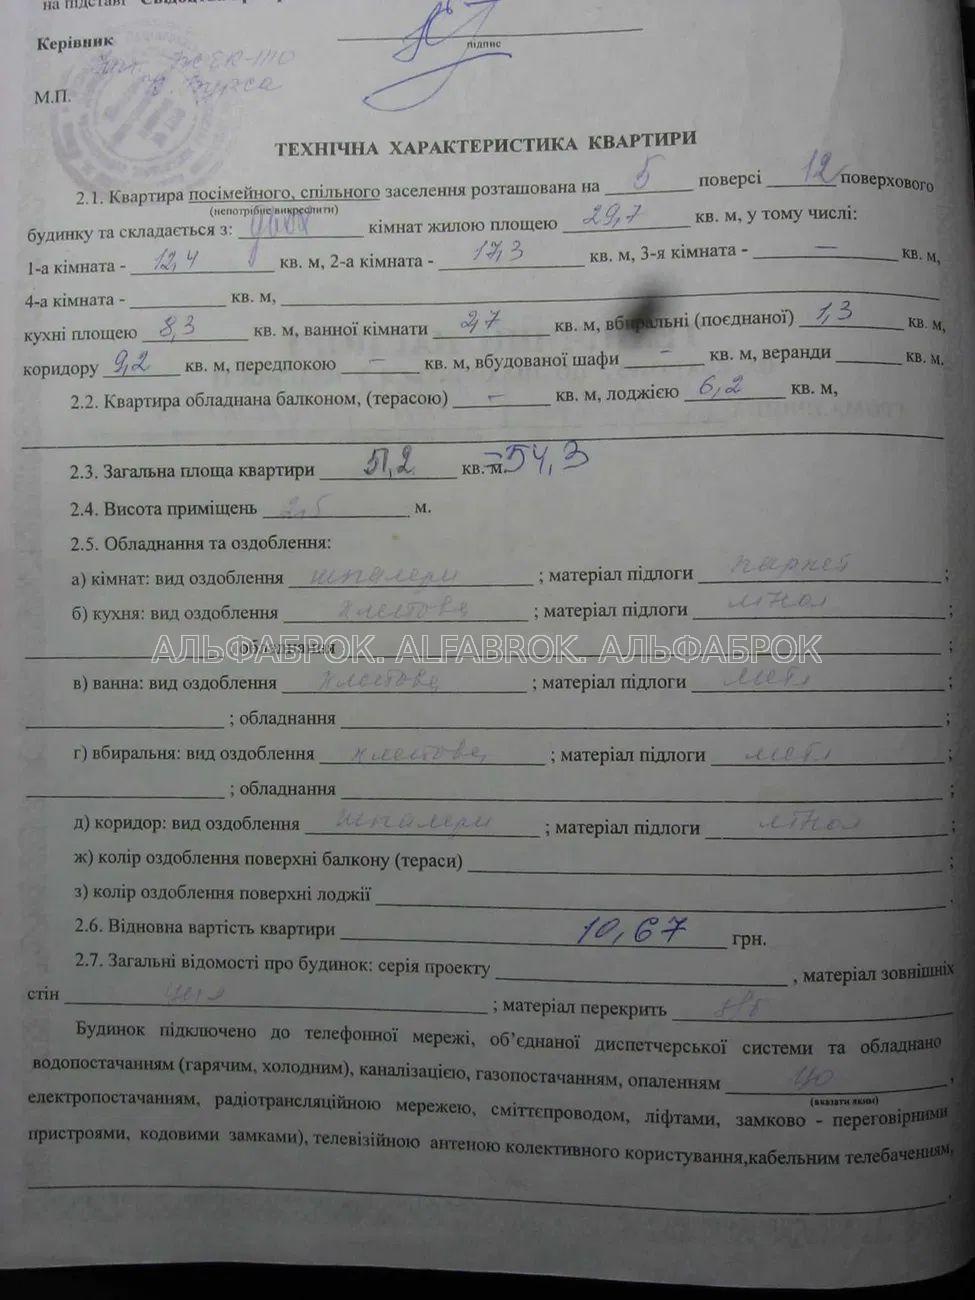 на підставі
Керівник
підпис
М.П.
ТЕХНІЧНА ХАРАКТЕРИСТИКА КВАРТИРИ
2.1. Квартира посімейного, спільного заселення розташована на 5 поверсі 12 поверхового
(непотрібне викреслити)
будинку та складається з: двох кімнат жилою площею 29,7 кв. м, у тому числі:
1-а кімната - 12,4 кв. м, 2-а кімната - 17,3 кв. м, 3-я кімната - — кв. м,
4-а кімната - кв. м,
кухні площею 8,3 кв. м, ванної кімнати 2,7 кв. м, вбиральні (поєднаної) 1,3 кв. м,
коридору 9,2 кв. м, передпокою — кв. м, вбудованої шафи — кв. м, веранди кв. м.
2.2. Квартира обладнана балконом, (терасою) — кв. м, лоджією 6,2 кв. м,
2.3. Загальна площа квартири 51,2 кв. м. 54,3
2.4. Висота приміщень 2,5 м.
2.5. Обладнання та оздоблення:
а) кімнат: вид оздоблення шпалери ; матеріал підлоги паркет ;
б) кухня: вид оздоблення клейова ; матеріал підлоги лінол ;
обладнання ;
АЛЬФАБРОК. ALFABROK. АЛЬФАБРОК
в) ванна: вид оздоблення клейова ; матеріал підлоги метл ;
; обладнання ;
г) вбиральня: вид оздоблення клейова ; матеріал підлоги метл ;
; обладнання ;
д) коридор: вид оздоблення шпалери ; матеріал підлоги лінол ;
ж) колір оздоблення поверхні балкону (тераси) ;
з) колір оздоблення поверхні лоджії .
2.6. Відновна вартість квартири 10,67 грн.
2.7. Загальні відомості про будинок: серія проекту , матеріал зовнішніх
стін цегл ; матеріал перекрить з/б
Будинок підключено до телефонної мережі, об'єднаної диспетчерської системи та обладнано
водопостачанням (гарячим, холодним), каналізацією, газопостачанням, опаленням цо ,
(вказати яким)
електропостачанням, радіотрансляційною мережею, сміттєпроводом, ліфтами, замково - переговірними
пристроями, кодовими замками), телевізійною антеною колективного користування,кабельним телебаченням,